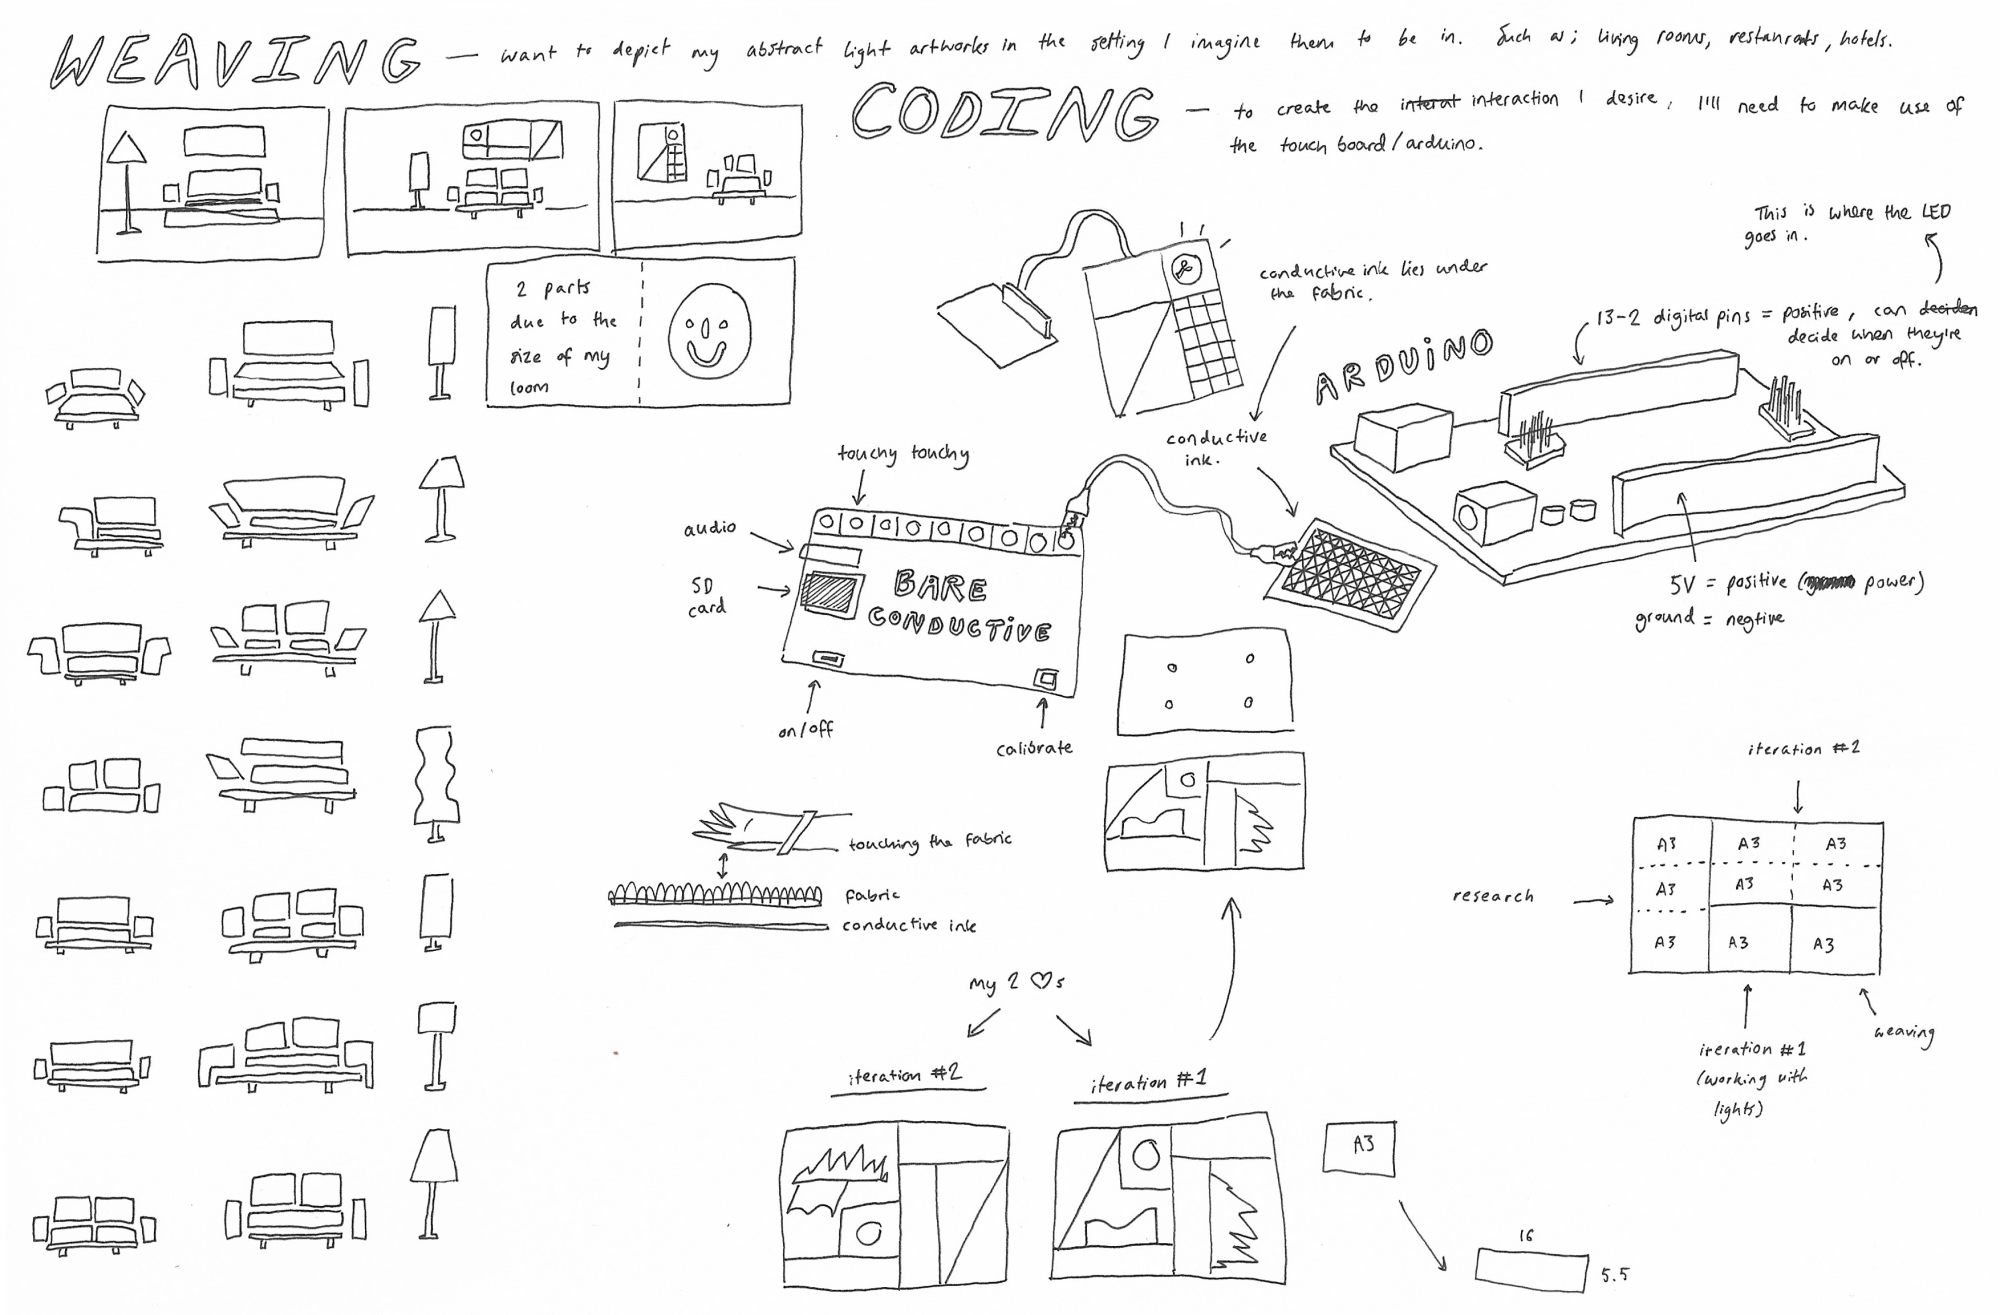 WEAVING — want to depict my abstract light artworks in the setting I imagine them to be in. Such as; living rooms, restaurants, hotels.
CODING — to create the interat interaction I desire, I'll need to make use of
the touch board/arduino.
2 parts
due to the
size of my
loom
conductive ink lies under
the fabric.
This is where the LED
goes in.
13-2 digital pins = positive, can deciden
decide when they're
on or off.
ARDUiNO
conductive
ink.
touchy touchy
audio
SD
card
BARE
CONDUCTiVE
on/off
calibrate
5V = positive ( power)
ground = negtive
touching the fabric
fabric
conductive ink
my 2 ♡s
iteration #2
iteration #1
iteration #2
research
A3 A3 A3
A3 A3 A3
A3 A3 A3
iteration #1
(working with
lights)
weaving
A3
16
5.5